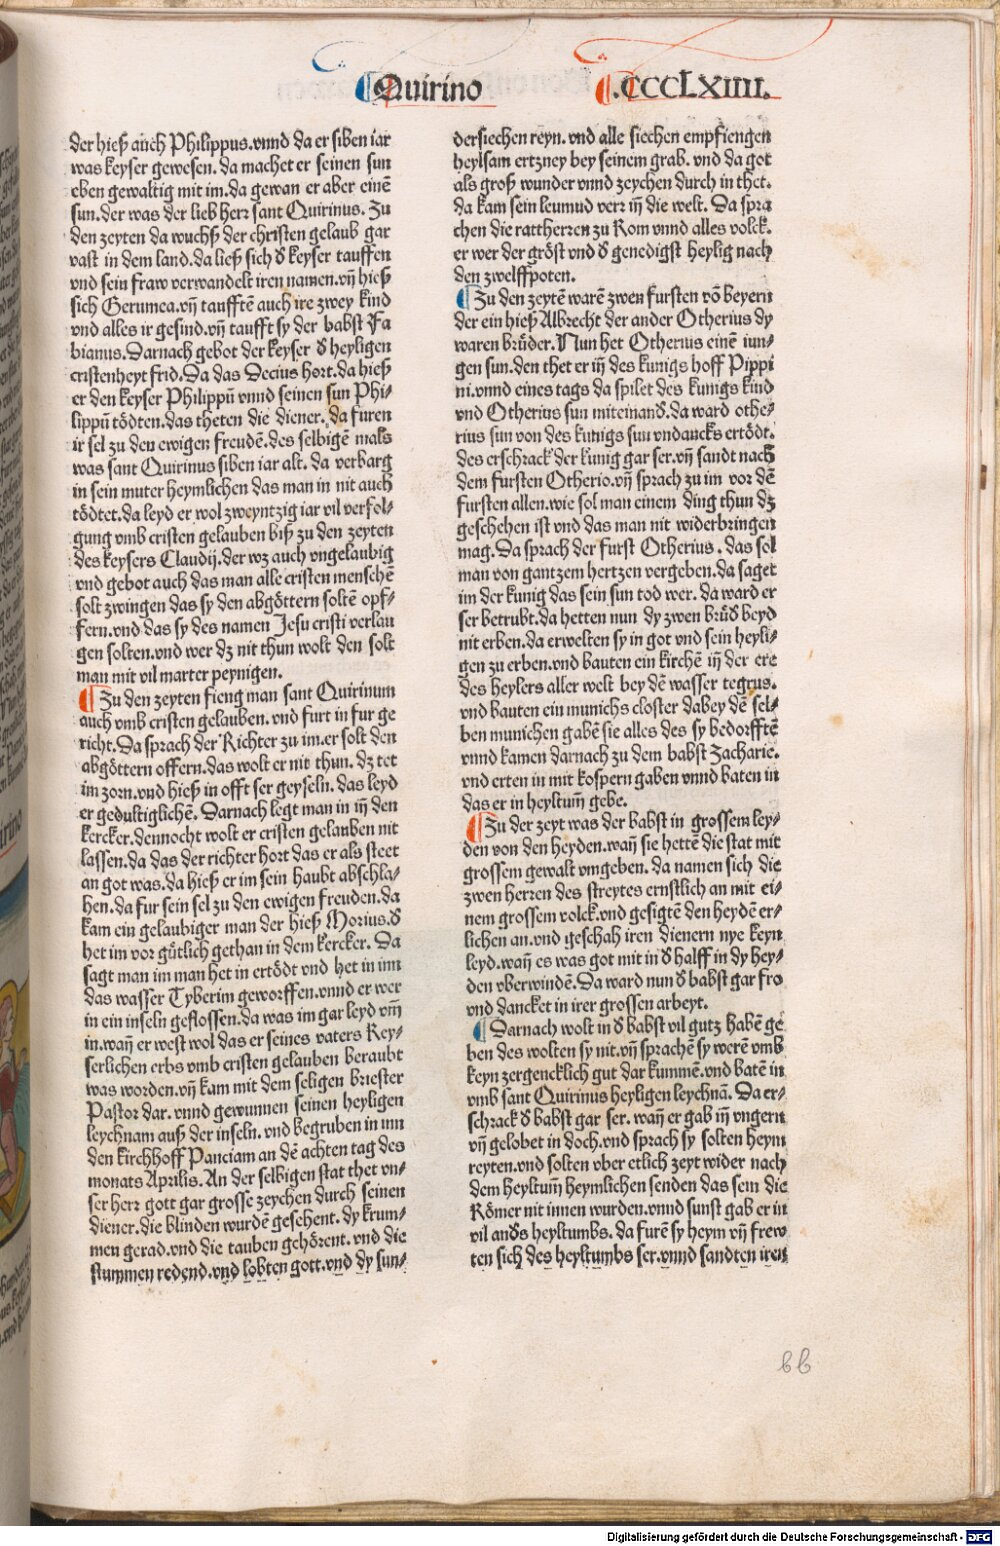 Quirino
.CCCLXIIII.
der hieß auch Philippus.vnnd da er siben iar
was keyser gewesen.da machet er seinen sun
eben gewaltig mit im.da gewan er aber einē
sun.der was der lieb herr sant Quirinus. Zu
den zeyten da wuchß der christen gelaub gar
vast in dem land.da ließ sich d̕ keyser tauffen
vnd sein fraw verwandelt iren namen.vn̄ hieß
sich Gerumea.vn̄ taufftē auch ire zwey kind
vnd alles ir gesind.vn̄ taufft sy der babst Fa
bianus.Darnach gebot der keyser d̕ heyligen
cristenheyt frid.Da das Decius hort.da hieß
er den keyser Philippū vnnd seinen sun Phi⸗
lippū tödten.das theten die diener. da furen
ir sel zu den ewigen freudē.des selbigē mals
was sant Quirinus siben iar alt. da verbarg
in sein muter heymlichen das man in nit auch
tödtet.da leyd er wol zweyntzig iar vil verfol⸗
gung vmb cristen gelauben biß zu den zeyten
des keysers Claudij.der wz auch vngelaubig
vnd gebot auch das man alle cristen menschē
solt zwingen das sy den abgöttern soltē opf⸗
fern.vnd das sy des namen Jesu cristi verlau
gen solten.vnd wer dz nit thun wolt den solt
man mit vil marter peynigen.
Zu den zeyten fieng man sant Quirinum
auch vmb cristen gelauben. vnd furt in fur ge
richt.Da sprach der Richter zu im.er solt den
abgöttern offern.das wolt er nit thun. dz tet
im zorn.vnd hieß in offt ser geyseln.das leyd
er gedultiglichē. Darnach legt man in in̄ den
kercker.dennocht wolt er cristen gelauben nit
lassen.da das der richter hort das er als steet
an got was.da hieß er im sein haubt abschla⸗
hen.da fur sein sel zu den ewigen freuden.da
kam ein gelaubiger man der hieß Morius.d̕
het im vor gütlich gethan in dem kercker. Da
sagt man im man het in ertödt vnd het in inn
das wasser Tyberim geworffen.vnnd er wer
in ein inseln geflossen.da was im gar leyd vm̄
in.wan̄ er west wol das er seines vaters Key⸗
serlichen erbs vmb cristen gelauben beraubt
was worden.vn̄ kam mit dem seligen briester
Pastor dar. vnnd gewunnen seinen heyligen
leychnam auß der inseln.vnd begruben in inn
den kirchhoff Panciam an dē achten tag des
monats Aprilis. An der selbigen stat thet vn⸗
ser herr gott gar grosse zeychen durch seinen
diener.die blinden wurdē gesehent. dy krum⸗
men gerad.vnd die tauben gehörent. vnd die
stummen redend.vnd lobten gott.vnd dy sun⸗
dersiechen reyn. vnd alle siechen empfiengen
heylsam ertzney bey seinem grab. vnd da got
als groß wunder vnnd zeychen durch in thet.
da kam sein leumud verr in̄ die welt. Da spra
chen die rattherren zu Rom vnnd alles volck.
er wer der gröst vnd d̕ genedigst heylig nach
den zwelffpoten.
Zu den zeytē warē zwen fursten vō beyern
der ein hieß Albrecht der ander Otherius dy
waren brüder. Nun het Otherius einē iun⸗
gen sun.den thet er in̄ des kunigs hoff Pippi
ni.vnnd eines tags da spilet des kunigs kind
vnd Otherius sun miteinand̕.da ward othe⸗
rius sun von des kunigs sun vndancks ertödt.
des erschrack der kunig gar ser.vn̄ sandt nach
dem fursten Otherio.vn̄ sprach zu im vor dē
fursten allen.wie sol man einem ding thun dz
geschehen ist vnd das man nit widerbringen
mag. Da sprach der furst Otherius . das sol
man von gantzem hertzen vergeben.da saget
im der kunig das sein sun tod wer. da ward er
ser betrubt.da hetten nun dy zwen brüd̕ beyd
nit erben.da erwelten sy in got vnd sein heyli⸗
gen zu erben.vnd bauten ein kirchē in̄ der ere
des heylers aller welt bey dē wasser tegrus.
vnd bauten ein munichs closter dabey dē sel⸗
ben munichen gabē sie alles des sy bedorfftē
vnnd kamen darnach zu dem babst Zacharie.
vnd erten in mit kospern gaben vnnd baten in
das er in heyltum̄ gebe.
Zu der zeyt was der babst in grossem ley⸗
den von den heyden.wan̄ sie hettē die stat mit
grossem gewalt vmgeben. da namen sich die
zwen herren des streytes ernstlich an mit ei⸗
nem grossem volck.vnd gesigtē den heydē er⸗
lichen an.vnd geschah iren dienern nye keyn
leyd.wan̄ es was got mit in d̕ halff in dy hey⸗
den vberwindē.Da ward nun d̕ babst gar fro
vnd dancket in irer grossen arbeyt.
Darnach wolt in d̕ babst vil gutz habē ge
ben des wolten sy nit.vn̄ sprachē sy werē vmb
keyn zergencklich gut dar kummē.vnd batē in
vmb sant Quirinus heyligen leychnā. Da er⸗
schrack d̕ babst gar ser. wan̄ er gab in̄ vngern
vn̄ gelobet in doch.vnd sprach sy solten heym
reyten.vnd solten vber etlich zeyt wider nach
dem heyltum̄ heymlichen senden das sein die
Römer nit innen wurden.vnnd sunst gab er in
vil and̕s heyltumbs. da furē sy heym vn̄ frew
ten sich des heyltumbs ser.vnnd sandten iren
bb
Digitalisierung gefördert durch die Deutsche Forschungsgemeinschaft - DFG